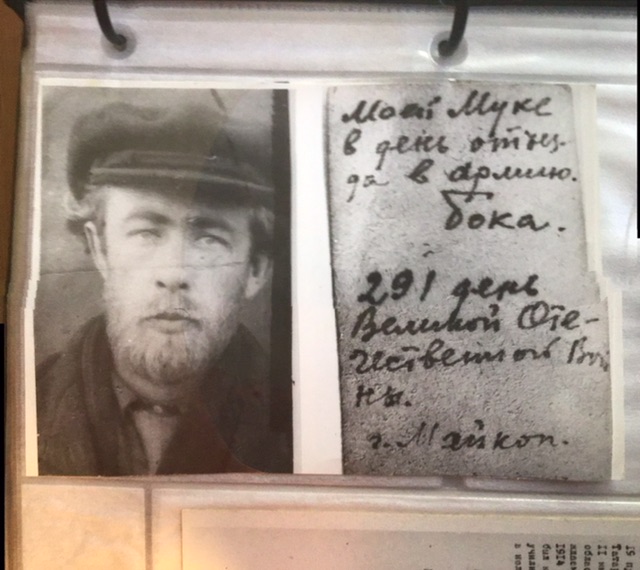 Моей Муке
в день отъез-
да в армию.
бока.
291 день
Великой Оте-
чественной Вой
ны.
г. Майкоп.
1914